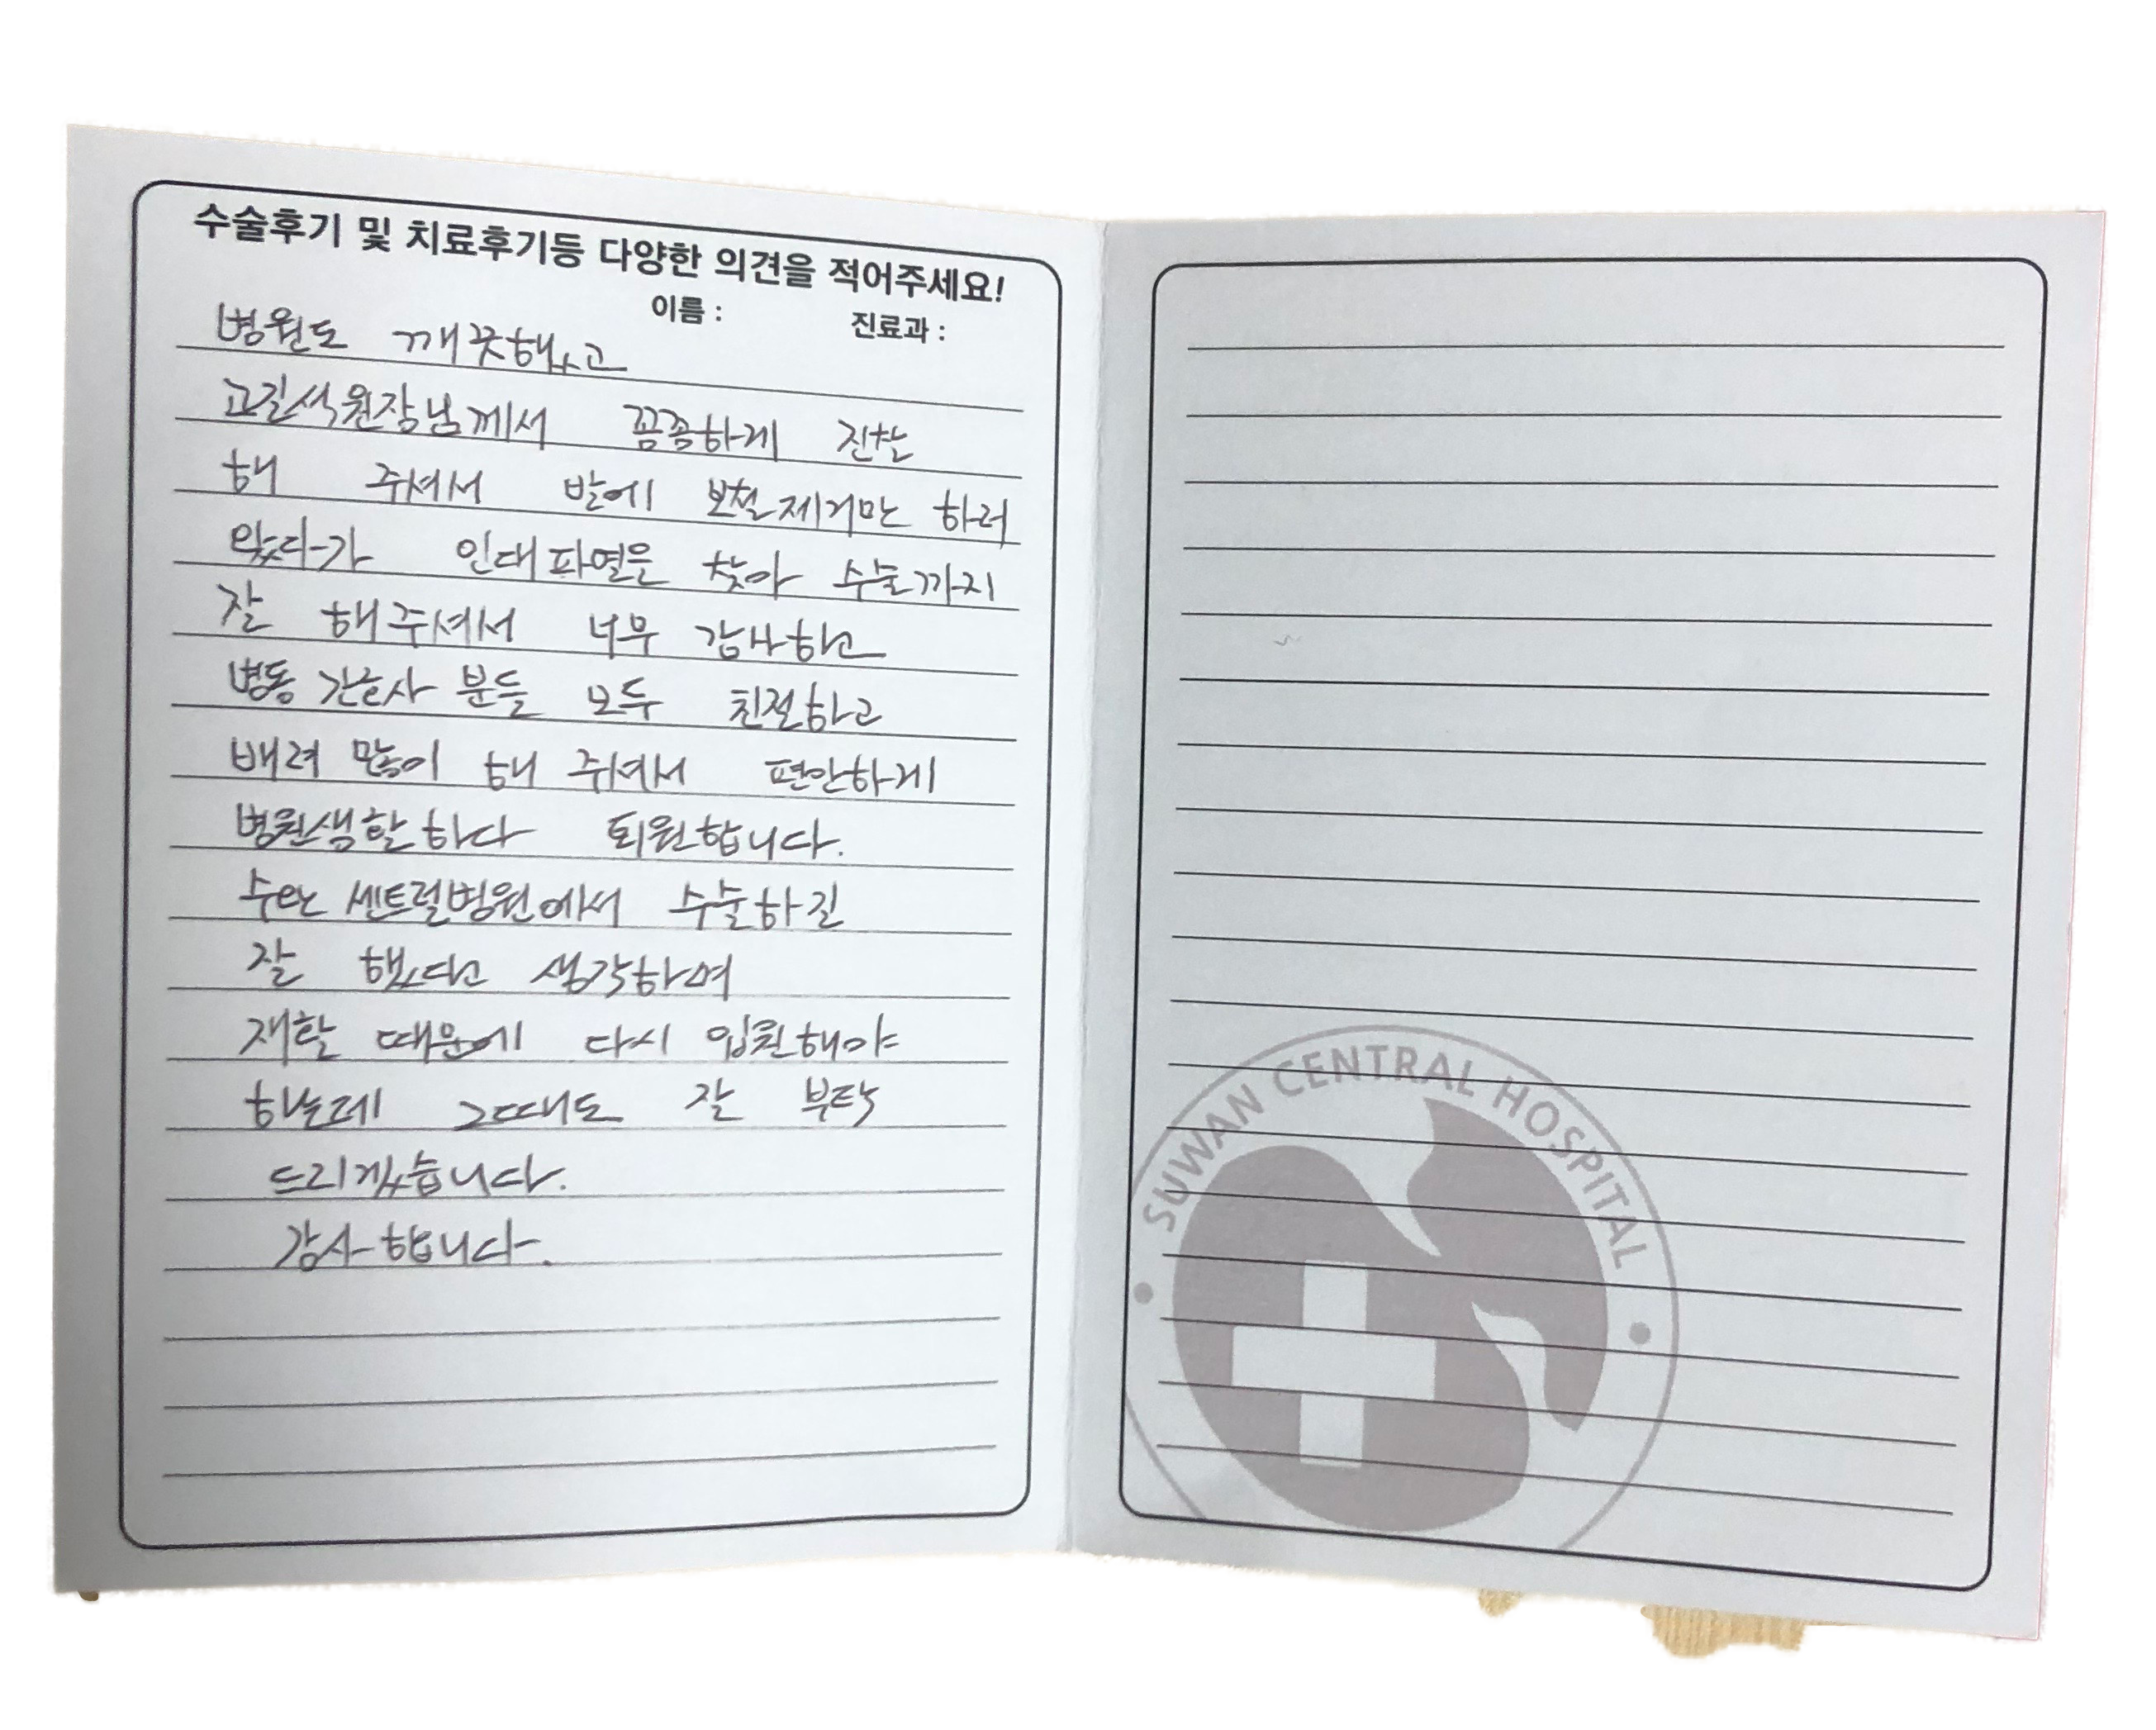 수술후기 및 치료후기등 다양한 의견을 적어주세요!
이름 :
진료과 :
병원도 깨끗했고
고길석원장님께서 꼼꼼하게 진찰
해 주셔서 발에 보철제거만 하러
왔다가 인대파열을 찾아 수술까지
잘 해주셔서 너무 감사하고
병동 간호사 분들 모두 친절하고
배려 많이 해 주셔서 편안하게
병원생활하다 퇴원합니다.
수완 센트럴병원에서 수술하길
잘 했다고 생각하며
재활 때문에 다시 입원해야
하는데 그때도 잘 부탁
드리겠습니다.
감사합니다.
SUWAN CENTRAL HOSPITAL